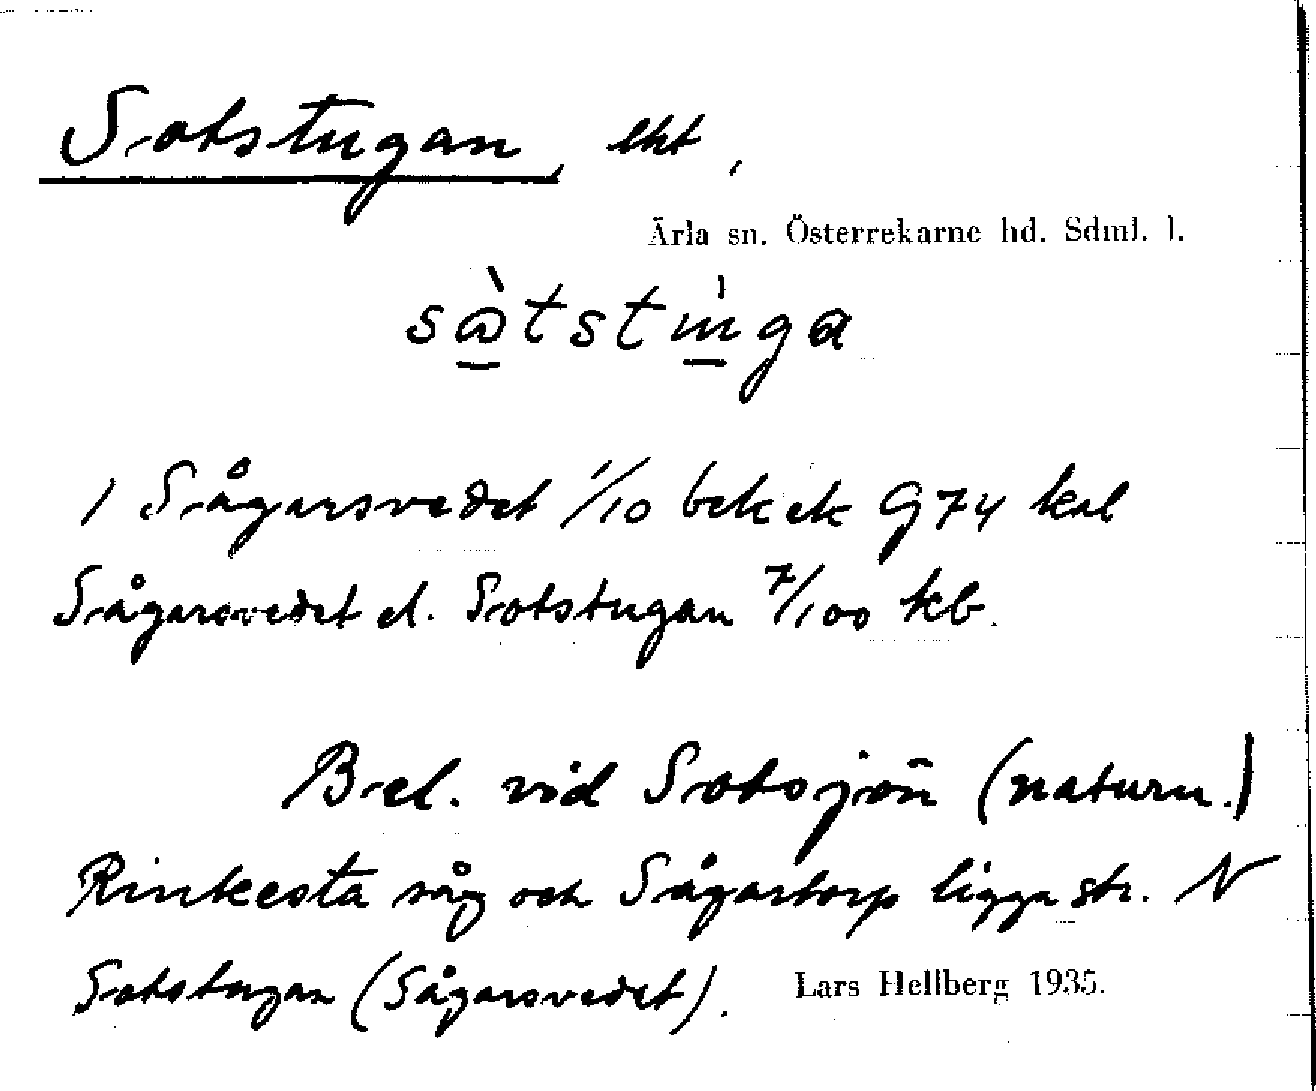 Sotstugan, lht,
Ärla sn. Österrekarne hd. Sdml. l.
1 Sågarsvedet 1/10 bek ek G 74 kal
Sågarsvedet el. Sotstugan 7/100 kb.
Bel. vid Sotsjön (naturn.)
Rinkesta såg och Sågartorp ligga str. N
Sotstugan (Sågarsvedet).
Lars Hellberg 1935.